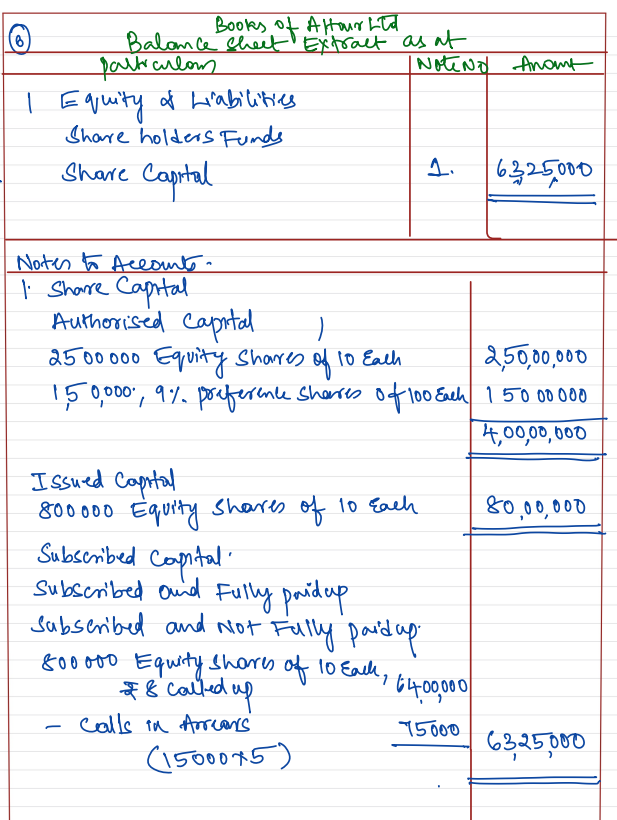 8
Books of A Hour Ltd
Balance sheet Extract as at
particulars Note No Amount
1 Equity & Liabilities
Share holders Funds
Share Capital 1. 6325000
Notes to Accounts.
1. Share Capital
Authorised Capital
2500000 Equity Shares of 10 Each 2,50,00,000
1,50,000, 9% preference shares of 100 Each 1 50 00000
4,00,00,000
Issued Capital
800000 Equity Shares of 10 Each 80,00,000
Subscribed Capital.
Subscribed and Fully paidup
Subscribed and Not Fully paidup.
800000 Equity Shares of 10 Each,
₹ 8 Called up 6400,000
- Calls in Arrears 75000 63,25,000
(15000×5)